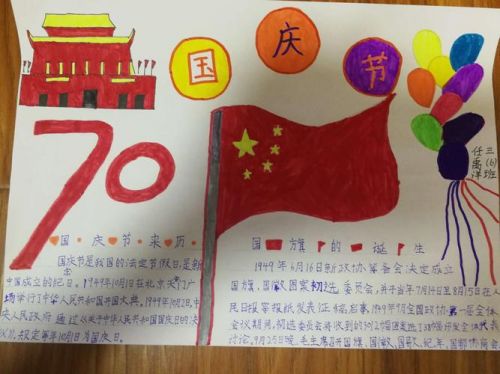 国庆节
三(6)班
任禹洋
70
国庆节来历
国庆节是我国的法定节假日,是新
中国成立的纪日。1949年10月1日在北京天安门广
场举行了中华人民共和国开国大典,1949年10月2日,中
央人民政府通过《关于中华人民共和国国庆日的决
议》,规定每年10月1日为国庆日。
国旗的诞生
1949年6月16日新政协筹备会决定成立
国旗,国徽图案初选委员会,并于当年7月14日至8月15日在人
民日报等报纸发表征稿启事,1949年9月全国政协第一届全体
会议期间,初选委员会将收到的
讨论。9月25日晚,毛主席召开国旗、国徽、国歌、纪年、国都协商会